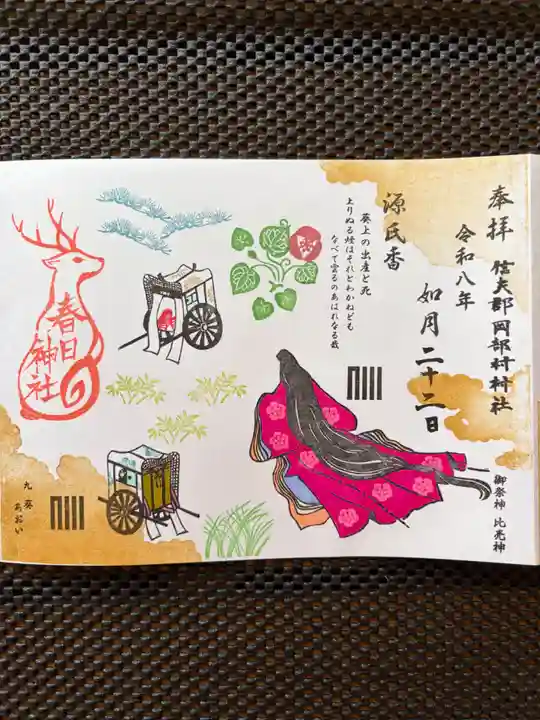 奉拝
信夫郡岡部村村社
令和八年
如月二十二日
御祭神 比売神
源氏香
葵上の出産と死
上りぬる煙はそれとわかねども
なべて雲ゐのあはれなる哉
春日
神社
九 葵
あおい